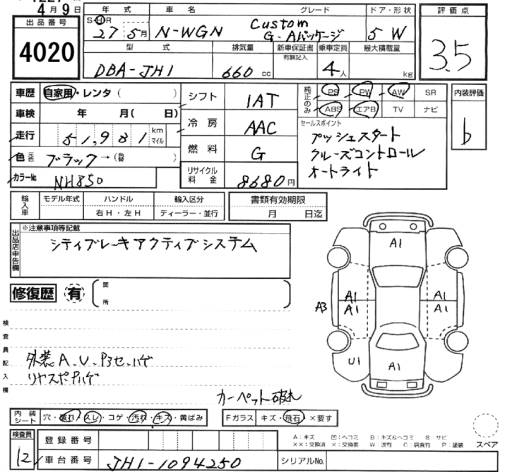 4月9日
出品番号
4020
年式 車名 グレード ドア・形状
27 5月 N-WGN Custom G・Aパッケージ 5 W
型式 排気量 新車保証書 乗車定員 最大積載量
有無記入
DBA-JH1 660 cc 4人 kg
評価点
3.5
車歴 自家用・レンタ ( )
車検 年 月( 日)
走行 51,981 km マイル
色 ブラック→(替 )
カラー№ NH850
シフト IAT
冷房 AAC
燃料 G
リサイクル料金 8680円
純正のみ PS PW AW SR
ABS エアB TV ナビ
セールスポイント
プッシュスタート
クルーズコントロール
オートライト
内装評価
b
輸入車 モデル年式 ハンドル 輸入区分 書類有効期限
右H・左H ディーラー・並行 月 日迄
出品店申告欄
※注意事項等記載
シティブレーキアクティブシステム
修復歴 有 ( 箇所 )
検査員記入欄
外装A.U.
リヤスポハゲ
カーペット破れ
A1
A3 A1 A1 A1 A1
U1 A1
内装シート 穴・破れ・スレ・コゲ・汚れ・キズ・黄ばみ
Fガラス キズ・飛石・×要す
検査員 12
登録番号
車台番号 JH1-1094250
シリアル№
A:キズ
スペア